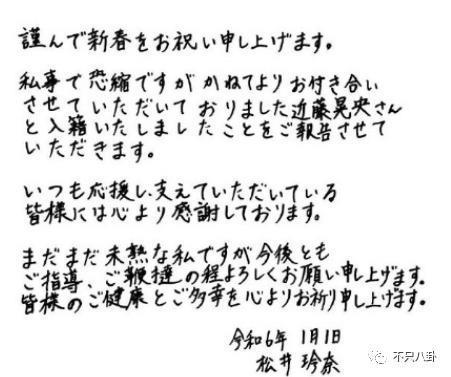 謹んで新春をお祝い申し上げます。
私事で恐縮ですがかねてよりお付き合い
させていただいておりました近藤晃央さん
と入籍いたしましたことをご報告させて
いただきます。
いつも応援し、支えていただいている
皆様には心より感謝しております。
まだまだ未熟な私ですが今後とも
ご指導、ご鞭撻の程よろしくお願い申し上げます。
皆様のご健康とご多幸を心よりお祈り申し上げます。
令和6年 1月1日
松井 玲奈
不只八卦